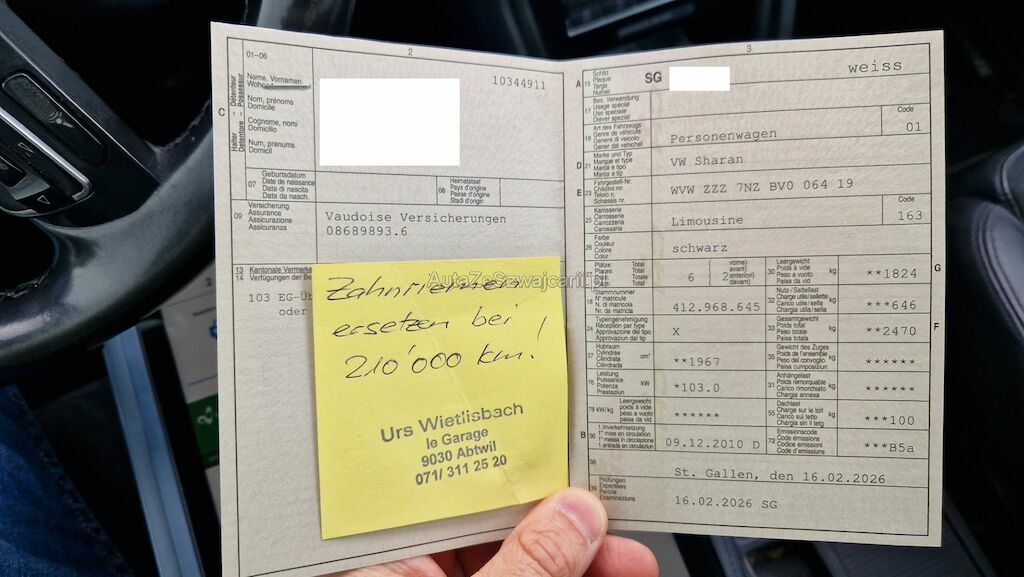 2
01–06
Name, Vornamen
Wohnort
Nom, prénoms
Domicile
Cognome, nomi
Domicilio
Num, prenums
Domicil
C
Halter
Détenteur
Detentore
Possessur
10344911
07
Geburtsdatum
Date de naissance
Data di nascita
Data da nasch.
08
Heimatstaat
Pays d'origine
Paese d'origine
Stadi d'origin
09
Versicherung
Assurance
Assicurazione
Assicuranza
Vaudoise Versicherungen
08689893.6
13
14
Kantonale Vermerke
Verfügungen der Be
103 EG-Üb
oder
AutaZeSzwajcarii.pl
Zahnriemen
ersetzen bei
210'000 km!
Urs Wietlisbach
le Garage
9030 Abtwil
071/ 311 25 20
3
A
15
Schild
Plaque
Targa
Numer
SG
weiss
17
Bes. Verwendung
Usage spécial
Uso speciale
Diever spezial
19
Art des Fahrzeugs
Genre de véhicule
Genere di veicolo
Gener dal vehichel
Personenwagen
Code
01
D
21
Marke und Typ
Marque et type
Marca e tipo
Marca e tip
VW Sharan
E
23
Fahrgestell-Nr.
Châssis no
Telaio n.
Schassis nr.
WVW ZZZ 7NZ BV0 064 19
25
Karosserie
Carrosserie
Carrozzeria
Carossaria
Limousine
Code
163
26
Farbe
Couleur
Colore
Colur
schwarz
27
Plätze: Total
Places: Total
Posti: Totale
Plazs: Total
6 ( 2
vorne)
avant)
anteriori)
davant)
30
Leergewicht
Poids à vide
Peso a vuoto
Paisa vid
**1824
G
18
Stammnummer
N° matricule
N. di matricola
Nr. da matricla
412.968.645
32
Nutz-/Sattellast
Charge utile/sellette
Carico utile/sella
Chargia utila/sella
***646
24
Typengenehmigung
Réception par type
Approvazione del tipo
Approvaziun dal tip
X
33
Gesamtgewicht
Poids total
Peso totale
Paisa totala
**2470
F
37
Hubraum
Cylindrée
Cilindrata
Cilindrada
cm³
**1967
35
Gewicht des Zuges
Poids de l'ensemble
Peso del convoglio
Paisa cumposiziun
******
76
Leistung
Puissance
Potenza
Prestaziun
kW
*103.0
31
Anhängelast
Poids remorquable
Carico rimorchiato
Chargia annexa
******
78 kW/kg
Leergewicht
poids à vide
peso a vuoto
paisa da vid
******
55
Dachlast
Charge sur le toit
Carico sul tetto
Chargia sin il tetg
***100
B
36
1. Inverkehrsetzung
1re mise en circulation
1a messa in circolazione
1. entrada en circulaziun
09.12.2010 D
72
Emissionscode
Code émissions
Codice emissioni
Code d'emissiuns
***B5a
38
St. Gallen, den 16.02.2026
39
Prüfungen
Expertises
Perizie
Examinaziuns
16.02.2026 SG